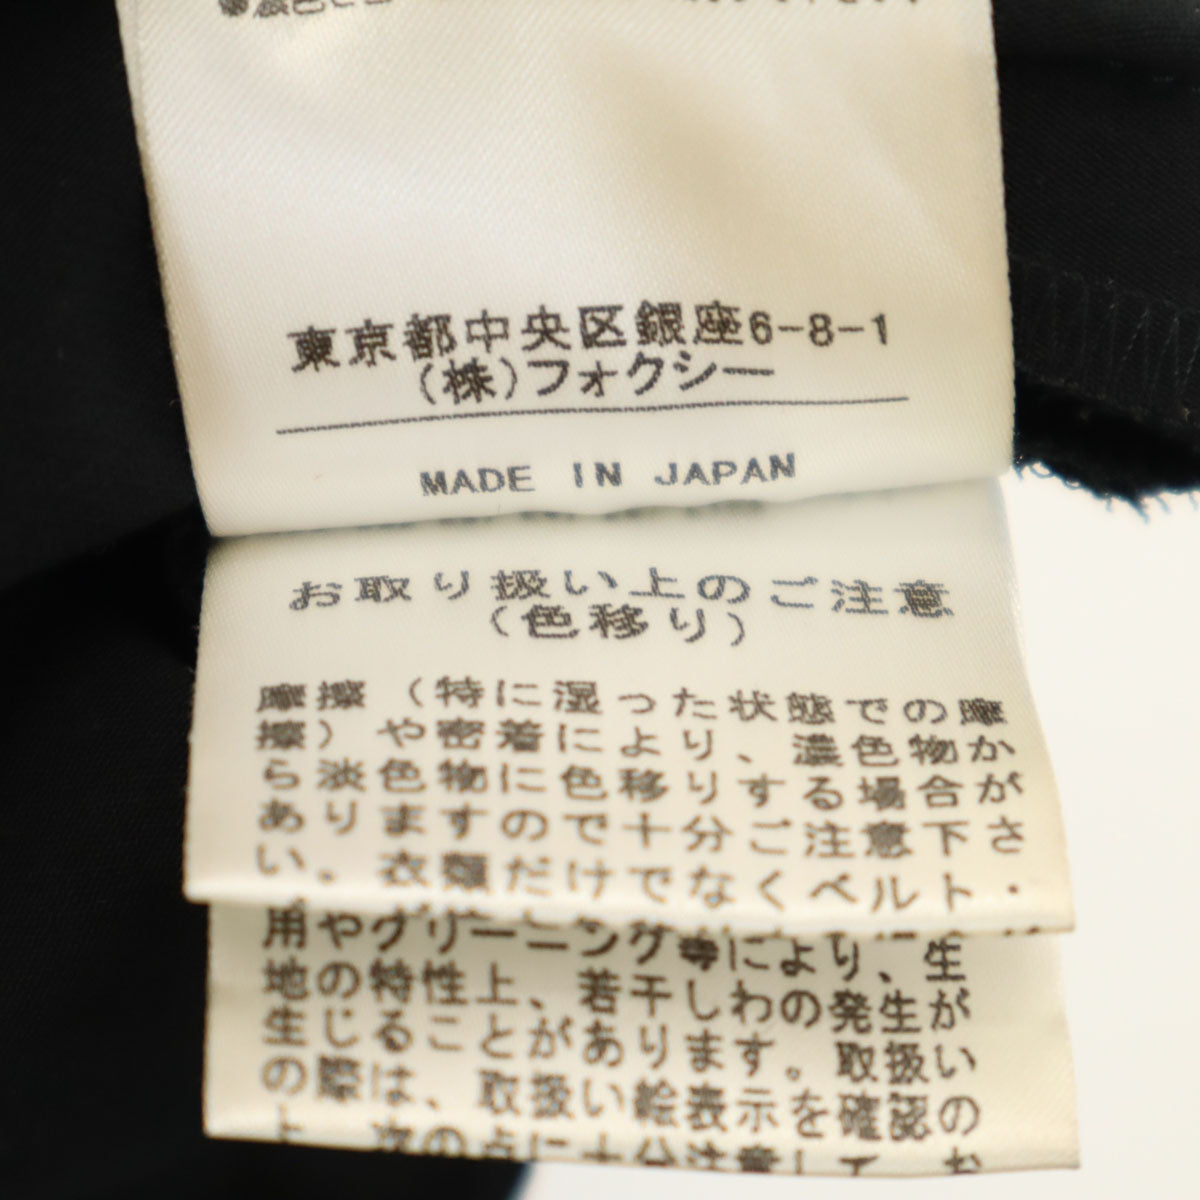 東京都中央区銀座6-8-1
(株)フォクシー
MADE IN JAPAN
お取り扱い上のご注意
(色移り)
摩擦(特に湿った状態での摩
擦)や密着により、濃色物か
ら淡色物に色移りする場合が
あります。ので十分ご注意下さ
い。衣類だけでなくベルト・
用やクリーニング等により、生
地の特性上、若干しわの発生が
生じることがあります。取扱い
の際は、取扱い絵表示を確認の
上、次の点に十分注意して、お